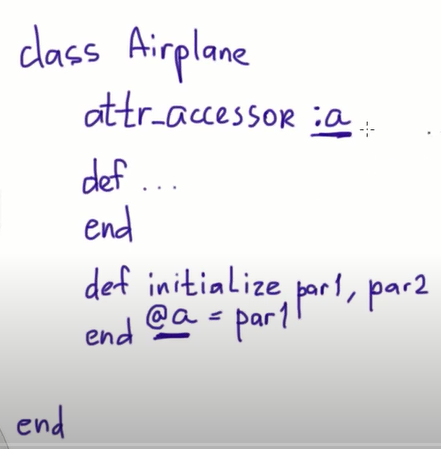 class Airplane
attr_accessor :a
def ...
end
def initialize par1, par2
@a = par1
end
end